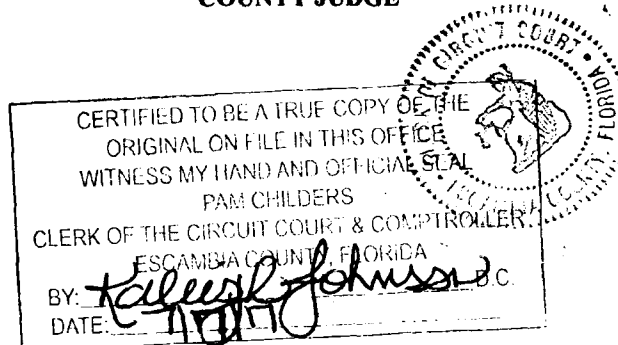 COUNTY JUDGE
CIRCUIT COURT
FLORIDA
CERTIFIED TO BE A TRUE COPY OF THE
ORIGINAL ON FILE IN THIS OFFICE
WITNESS MY HAND AND OFFICIAL SEAL
PAM CHILDERS
CLERK OF THE CIRCUIT COURT & COMPTROLLER
ESCAMBIA COUNTY, FLORIDA
BY: Kaleigh Johnson D.C.
DATE: